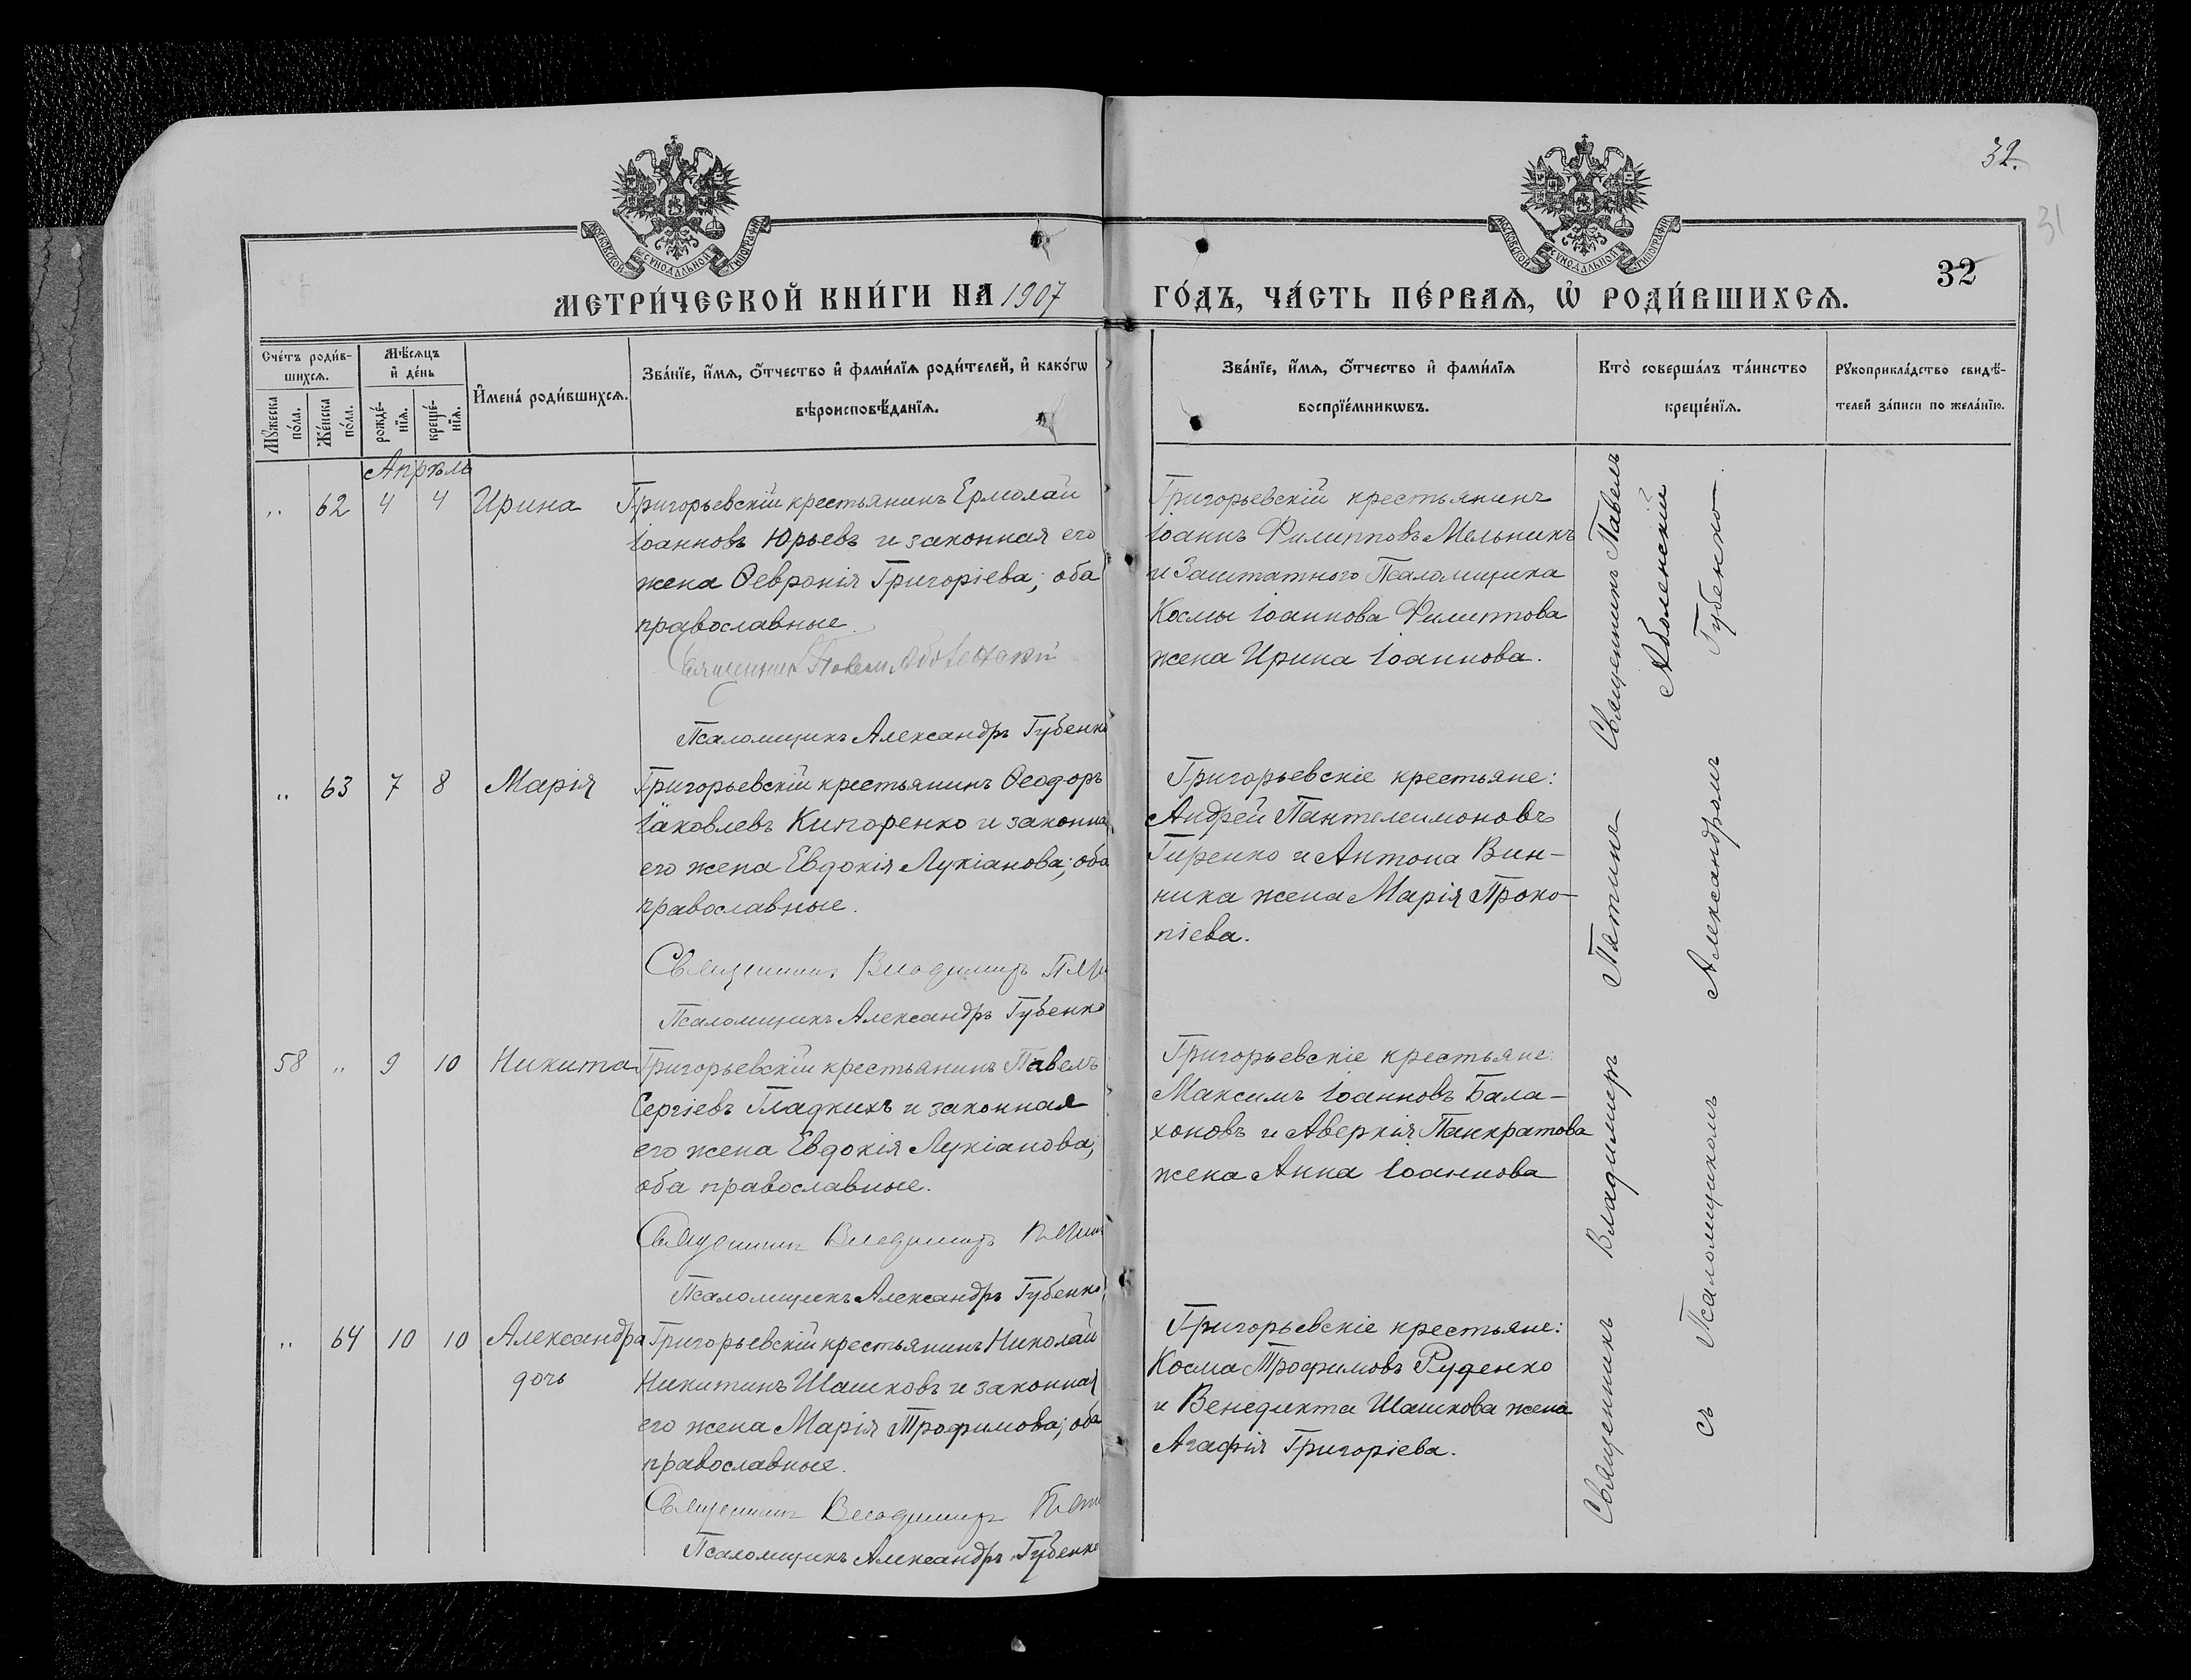 32.
31
МОСКОВСКОЙ СУНОДАЛЬНОЙ ТИПОГРАФІИ
МОСКОВСКОЙ СУНОДАЛЬНОЙ ТИПОГРАФІИ
32
МЕТРИ́ЧЕСКОЙ КНИ́ГИ НА 1907
ГО́ДЪ, ЧА́СТЬ ПЕ́РВАѦ, Ѡ҆ РОДИ́ВШИХСѦ.
Сче́тъ роди́в-
шихсѧ.
Мꙋ́жеска
по́ла.
Же́нска
по́ла.
Мѣ́сѧцъ
и҆ де́нь
рожде́-
нїѧ.
креще́-
нїѧ.
И҆мена̀ роди́вшихсѧ.
Зва́нїе, и҆́мѧ, ѻ҆́тчество и҆ фами́лїѧ роди́телей, и҆ како́гѡ
вѣроисповѣ́данїѧ.
Зва́нїе, и҆́мѧ, ѻ҆́тчество и҆ фами́лїѧ
воспрїе́мникѡвъ.
Кто̀ соверша́лъ та́инство
креще́нїѧ.
Рꙋкоприкла́дство свидѣ́-
телей за́писи по жела́нїю.
Апрѣль
„ 62 4 4 Ирина
Григорьевскій крестьянинъ Ермолай
Іоанновъ Юрьевъ и законная его
жена Ѳевронія Григоріева; оба
православные.
Священникъ Павелъ Аболенскій
Псаломщикъ Александръ Губенко
Григорьевскій крестьянинъ
Іоаннъ Филипповъ Мельникъ
и Заштатного Псаломщика
Космы Іоаннова Филиппова
жена Ирина Іоаннова.
„ 63 7 8 Марія
Григорьевскій крестьянинъ Ѳеодоръ
Іаковлевъ Кипоренко и законна
его жена Евдокія Лукіанова; оба
православные.
Священникъ Владимиръ Пят
Псаломщикъ Александръ Губенко
Григорьевскіе крестьяне:
Андрей Пантелеимоновъ
Гиренко и Антона Вин-
ника жена Марія Проко-
піева.
58 „ 9 10 Никита
Григорьевскій крестьянинъ Павелъ
Сергіевъ Гладкихъ и законная
его жена Евдокія Лукіанова;
оба православные.
Священникъ Владимиръ Пятин
Псаломщикъ Александръ Губенко
Григорьевскіе крестьяне:
Максимъ Іоанновъ Бала-
хоновъ и Аверкія Панкратова
жена Анна Іоаннова
„ 64 10 10 Александра
дочь
Григорьевскій крестьянинъ Николай
Никитинъ Шашковъ и законная
его жена Марія Трофимова; оба
православные.
Священникъ Владимиръ Пят
Псаломщикъ Александръ Губенко
Григорьевскіе крестьяне:
Косма Трофимовъ Руденко
и Венедикта Шашкова жена
Агафія Григоріева.
Священникъ Владимиръ Пятинъ Священникъ Павелъ
Аболенскій
съ Псаломщикомъ Александромъ Губенко.